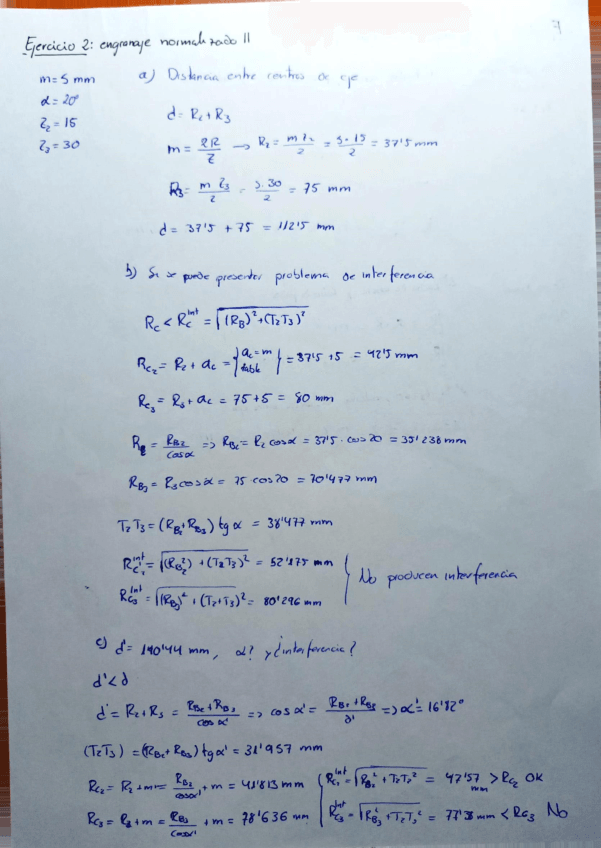 7
Ejercicio 2: engranaje normalizado II
m = 5 mm
α = 20°
Z₂ = 15
Z₃ = 30
a) Distancia entre centros de eje
d = R₂ + R₃
m = 2R/Z → R₂ = m Z₂/2 = 5·15/2 = 37'5 mm
R₃ = m Z₃/2 = 5·30/2 = 75 mm
d = 37'5 + 75 = 112'5 mm
b) Si se puede presentar problema de interferencia
Rc < Rc^int = √((R_B)² + (T₂T₃)²)
Rc₂ = R₂ + ac = {ac = m tabla} = 37'5 + 5 = 42'5 mm
Rc₃ = R₃ + ac = 75 + 5 = 80 mm
R₂ = R_B₂/cosα => R_B₂ = R₂ cosα = 37'5 · cos 20 = 35'238 mm
R_B₃ = R₃ cosα = 75 cos 20 = 70'477 mm
T₂T₃ = (R_B₂ + R_B₃) tg α = 38'477 mm
Rc₂^int = √((R_B₂²) + (T₂T₃)²) = 52'175 mm
Rc₃^int = √((R_B₃)² + (T₂T₃)²) = 80'296 mm
No producen interferencia
c) d' = 110'44 mm, α? y ¿interferencia?
d' < d
d' = R₂ + R₃ = (R_B₂ + R_B₃)/cos α' => cos α' = (R_B₂ + R_B₃)/d' => α' = 16'82°
(T₂T₃) = (R_B₂ + R_B₃) tg α' = 31'957 mm
Rc₂ = R₂ + m = R_B₂/cosα' + m = 41'813 mm
Rc₃ = R₃ + m = R_B₃/cosα' + m = 78'636 mm
Rc₂^int = √(R_B₂² + T₂T₃²) = 47'57 mm > Rc₂ OK
Rc₃^int = √(R_B₃² + T₂T₃²) = 77'38 mm < Rc₃ No